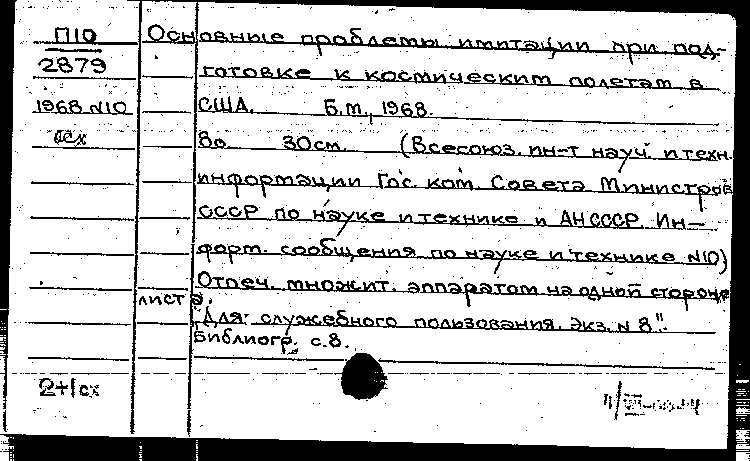 П10
2879
1968 N10
Основные проблемы имитации при под-
готовке к космическим полетам в
США. Б.м., 1968.
8о. 30см. (Всесоюз. ин-т науч. и техн.
информации Гос. ком. Совета Министров
СССР по науке и технике и АН СССР. Ин-
форм. сообщения по науке и технике N10)
Отпеч. множит. аппаратом на одной стороне
листа.
"Для служебного пользования. Экз. N 8".
Библиогр. с.8.
2+1сх